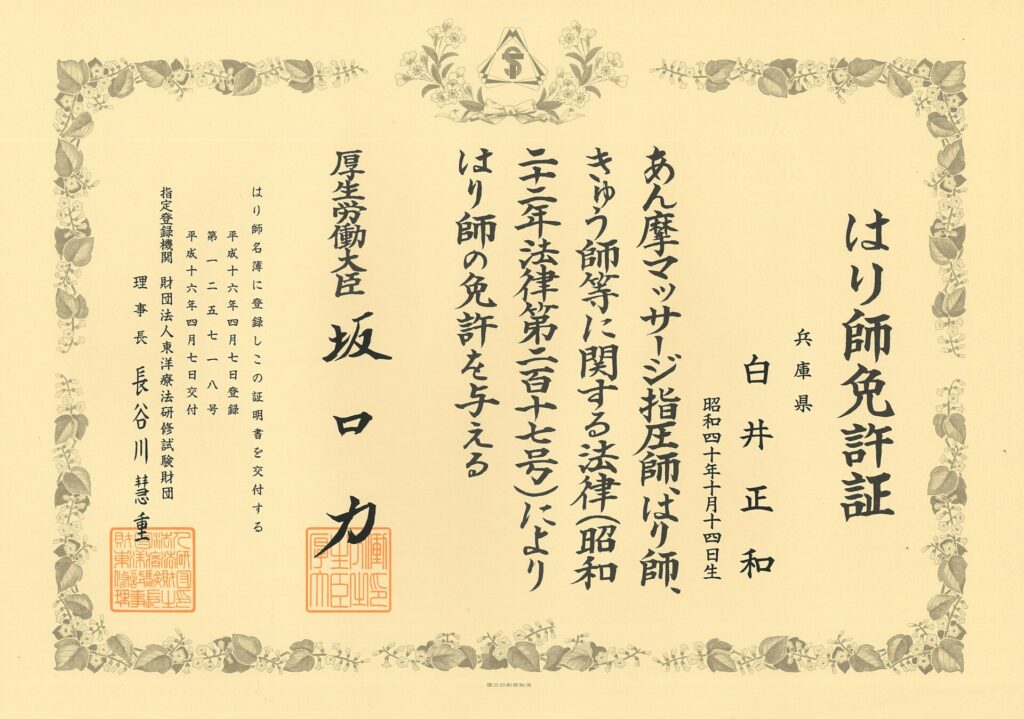 はり師免許証
兵庫県
白井正和
昭和四十年十月十四日生
あん摩マッサージ指圧師、はり師、
きゅう師等に関する法律(昭和
二十二年法律第二百十七号)により
はり師の免許を与える
厚生労働大臣 坂口力
はり師名簿に登録しこの証明書を交付する
平成十六年四月七日登録
第一二五七一八号
平成十六年四月七日交付
指定登録機関 財団法人東洋療法研修試験財団
理事長 長谷川慧重